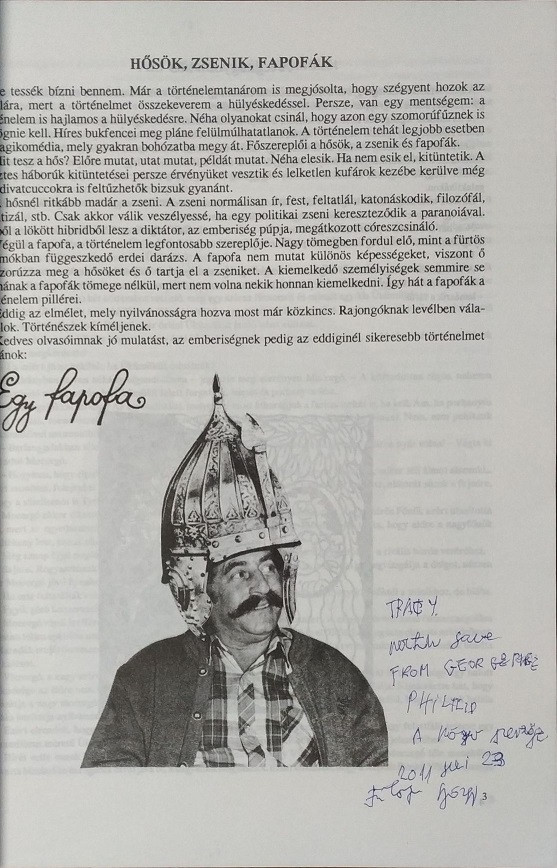 HŐSÖK, ZSENIK, FAPOFÁK
e tessék bízni bennem. Már a történelemtanárom is megjósolta, hogy szégyent hozok az
lára, mert a történelmet összekeverem a hülyéskedéssel. Persze, van egy mentségem: a
énelem is hajlamos a hülyéskedésre. Néha olyanokat csinál, hogy azon egy szomorúfűznek is
ögnie kell. Híres bukfencei meg pláne felülmúlhatatlanok. A történelem tehát legjobb esetben
agikomédia, mely gyakran bohózatba megy át. Főszereplői a hősök, a zsenik és fapofák.
it tesz a hős? Előre mutat, utat mutat, példát mutat. Néha elesik. Ha nem esik el, kitüntetik. A
ztes háborúk kitüntetései persze érvényüket vesztik és lelketlen kufárok kezébe kerülve még
divatcuccokra is feltűzhetők bizsuk gyanánt.
hősnél ritkább madár a zseni. A zseni normálisan ír, fest, feltatlál, katonáskodik, filozófál,
tizál, stb. Csak akkor válik veszélyessé, ha egy politikai zseni kereszteződik a paranoiával.
ől a lökött hibridből lesz a diktátor, az emberiség púpja, megátkozott córeszcsináló.
égül a fapofa, a történelem legfontosabb szereplője. Nagy tömegben fordul elő, mint a fürtös
mókban függeszkedő erdei darázs. A fapofa nem mutat különös képességeket, viszont ő
zorúzza meg a hősöket és ő tartja el a zseniket. A kiemelkedő személyiségek semmire se
nának a fapofák tömege nélkül, mert nem volna nekik honnan kiemelkedni. Így hát a fapofák a
énelem pillérei.
ddig az elmélet, mely nyilvánosságra hozva most már közkincs. Rajongóknak levélben vála-
lok. Történészek kíméljenek.
Kedves olvasóimnak jó mulatást, az emberiségnek pedig az eddiginél sikeresebb történelmet
ánok:
Egy fapofa
TRACY
FROM GEORGE
PHILIP
A könyv szerzője
2011 23
Fülöp György
3